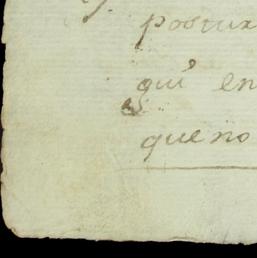 postur
qui en
que no